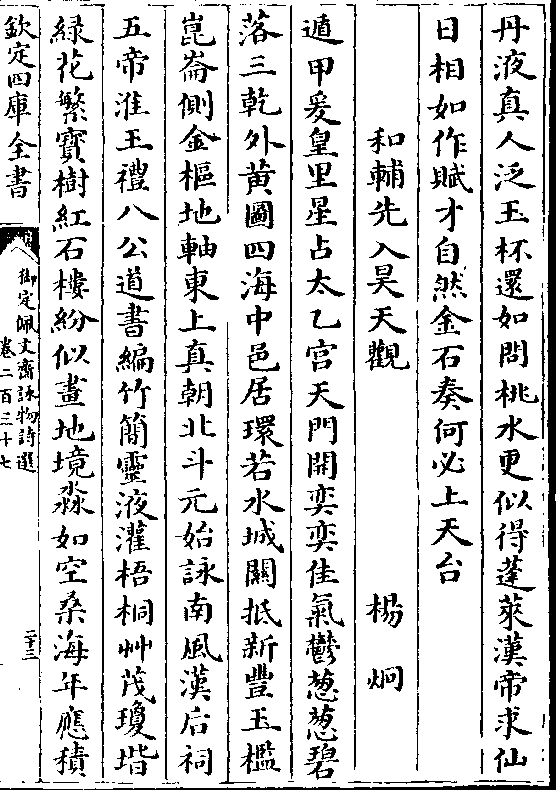 丹液真人泛玉杯還如問桃水更似得蓬萊漢帝求仙
日相如作賦才自然金石奏何必上天台
和輔先入昊天觀 楊炯
遁甲爰皇里星占太乙宫天門開奕奕佳氣鬱葱葱碧
落三乾外黄圖四海中邑居環若水城闗抵新豐玉檻
崑崙側金樞地軸東上真朝北斗元始詠南風漢后祠
五帝淮王禮八公道書編竹簡靈液灌梧桐艸茂瓊堦
緑花繁寳樹紅石樓紛似畫地境淼如空桑海年應積
欽定四庫全書
御定佩文齋詠物詩選
卷二百三十七
二十三